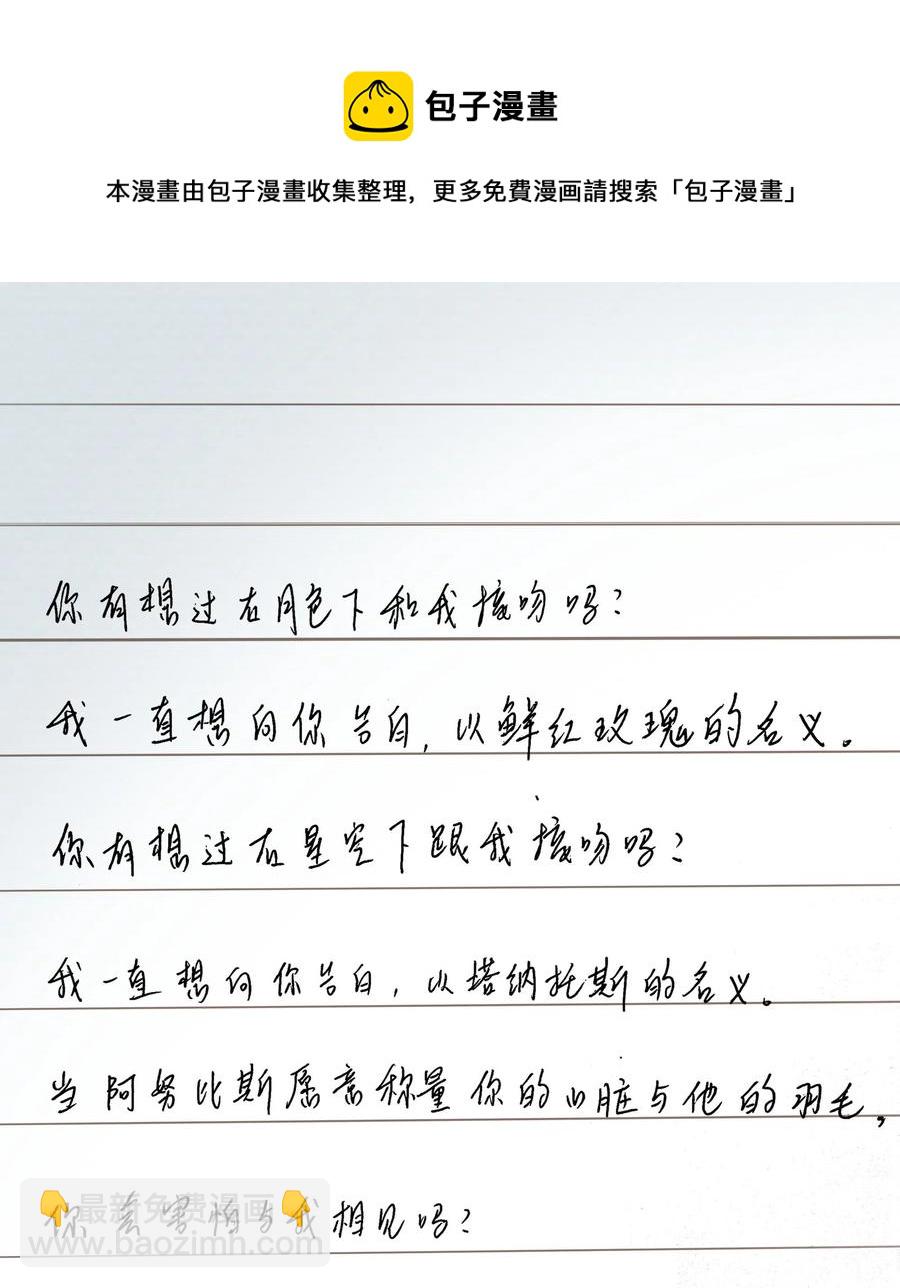 包子漫畫
本漫畫由包子漫畫收集整理，更多免費漫画請搜索「包子漫畫」
你有想过在月色下和我接吻吗？
我一直想向你告白，以鲜红玫瑰的名义。
你有想过在星空下跟我接吻吗？
我一直想向你告白，以塔纳托斯的名义。
当阿努比斯愿意称量你的心脏与他的羽毛，
你会害怕与我相见吗？
最新免费漫画
www.baozimh.com